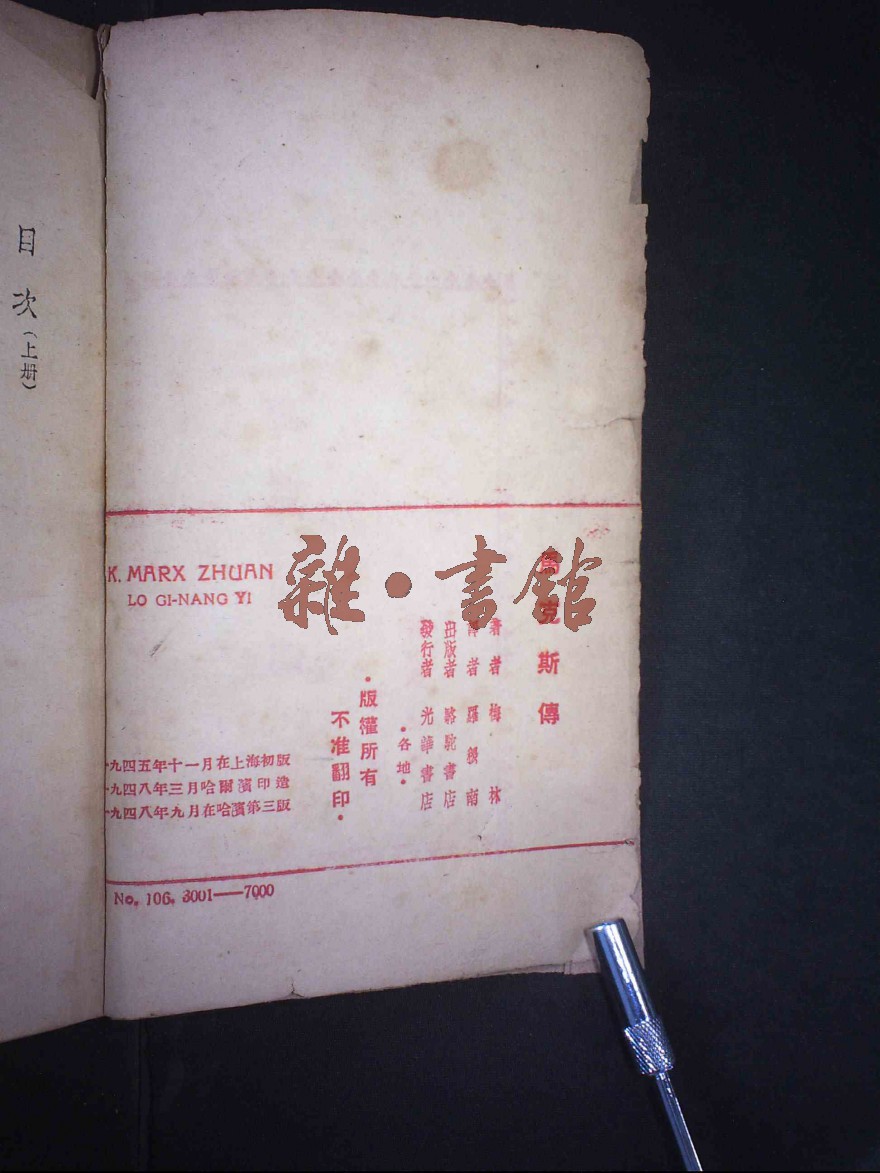 目次（上册）
雜·書館
馬克斯傳
著者 梅林
譯者 羅稷南
出版者 駱駝書店
發行者 光華書店
·各地·
·版權所有
不准翻印·
K. MARX ZHUAN
LO GI-NANG YI
一九四五年十一月在上海初版
一九四八年三月哈爾濱印造
一九四八年九月在哈濱第三版
No. 106. 3001——7000